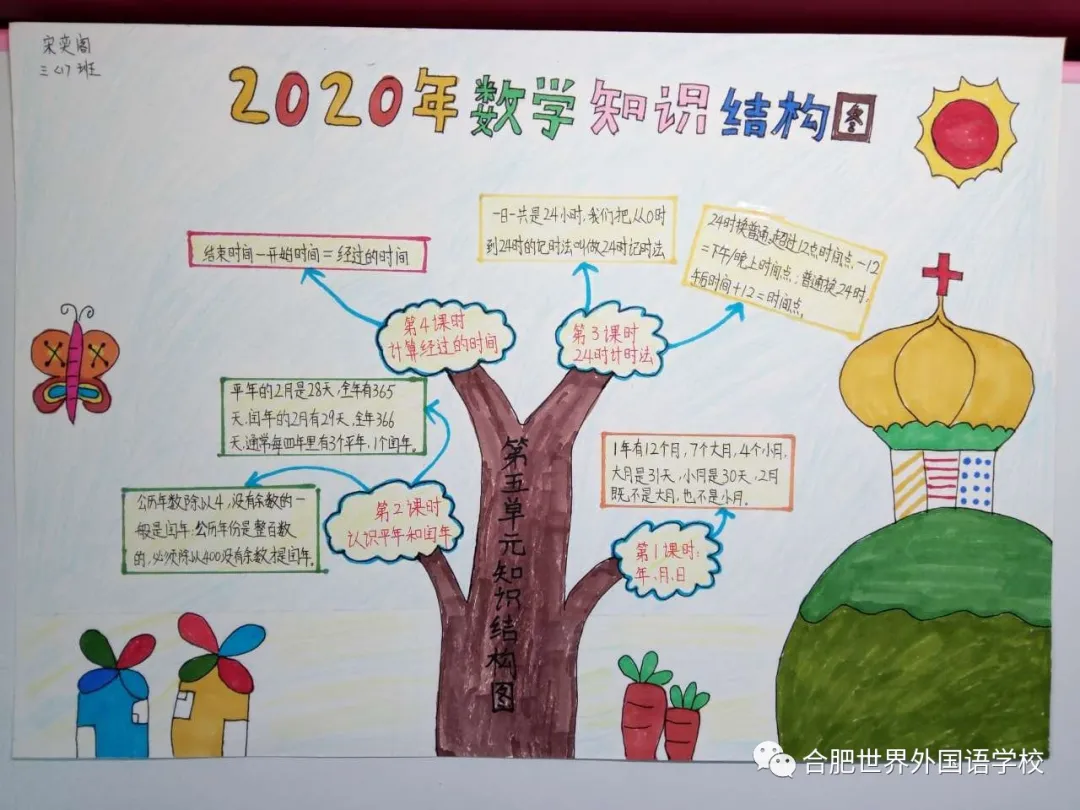 宋奕阁
三〈1〉班
2020年数学知识结构图
结束时间－开始时间＝经过的时间
一日一共是24小时,我们把,从0时
到24时的记时法叫做24时记时法
24时换普通,超过12点时间点－12
＝下午/晚上时间点；普通换24时,
午后时间＋12＝时间点。
第4课时
计算经过的时间
第3课时
24时计时法
平年的2月是28天,全年有365
天,闰年的2月有29天,全年366
天,通常每四年里有3个平年,1个闰年。
1年有12个月,7个大月,4个小月,
大月是31天,小月是30天,2月
既不是大月,也不是小月。
公历年数除以4,没有余数的一
般是闰年；公历年份是整百数
的,必须除以400没有余数才是闰年。
第2课时
认识平年和闰年
第1课时:
年、月、日
第五单元知识结构图
合肥世界外国语学校